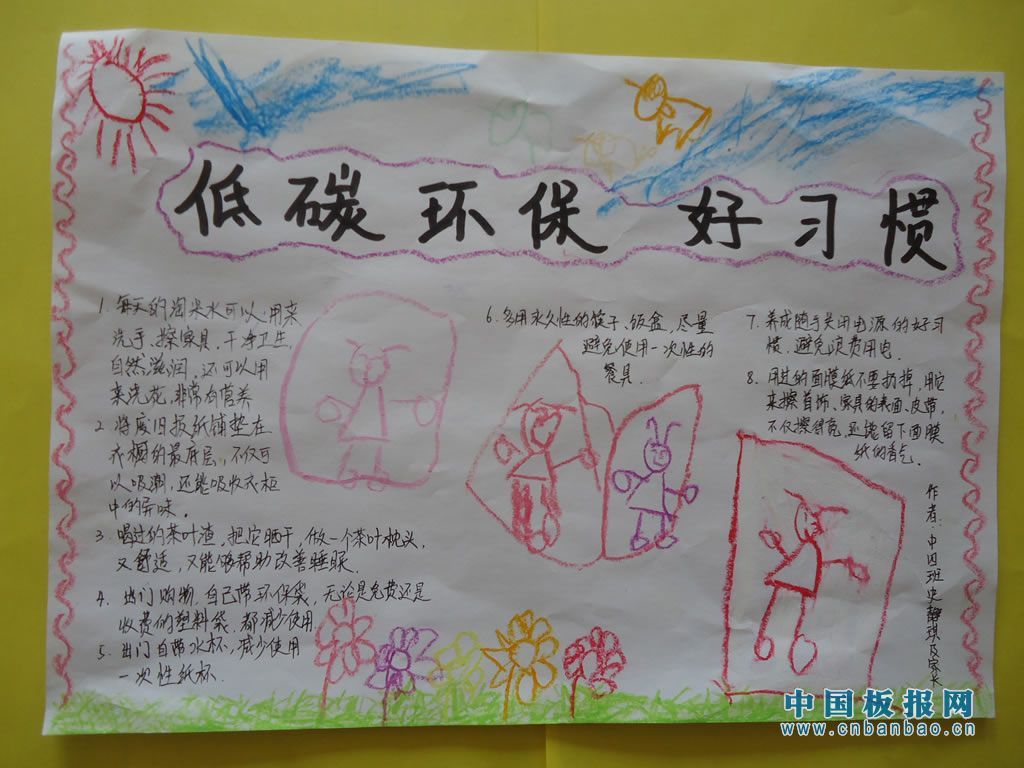 低碳环保 好习惯
1. 每天的淘米水可以用来
洗手、擦家具,干净卫生,
自然滋润,还可以用
来浇花,非常有营养
2 将废旧报纸铺垫在
衣橱的最底层,不仅可
以吸潮,还能吸收衣柜
中的异味。
3 喝过的茶叶渣,把它晒干,做一个茶叶枕头,
又舒适,又能够帮助改善睡眠。
4. 出门购物,自己带环保袋,无论是免费还是
收费的塑料袋,都减少使用.
5. 出门自带水杯,减少使用
一次性纸杯.
6. 多用永久性的筷子、饭盒,尽量
避免使用一次性的
餐具.
7. 养成随手关闭电源的好习
惯,避免浪费用电.
8. 用过的面膜纸不要扔掉,用它
来擦首饰、家具的表面、皮带,
不仅擦得亮,还能留下面膜
纸的香气.
作者:中四班史静琪及家长
中国板报网
www.cnbanbao.cn